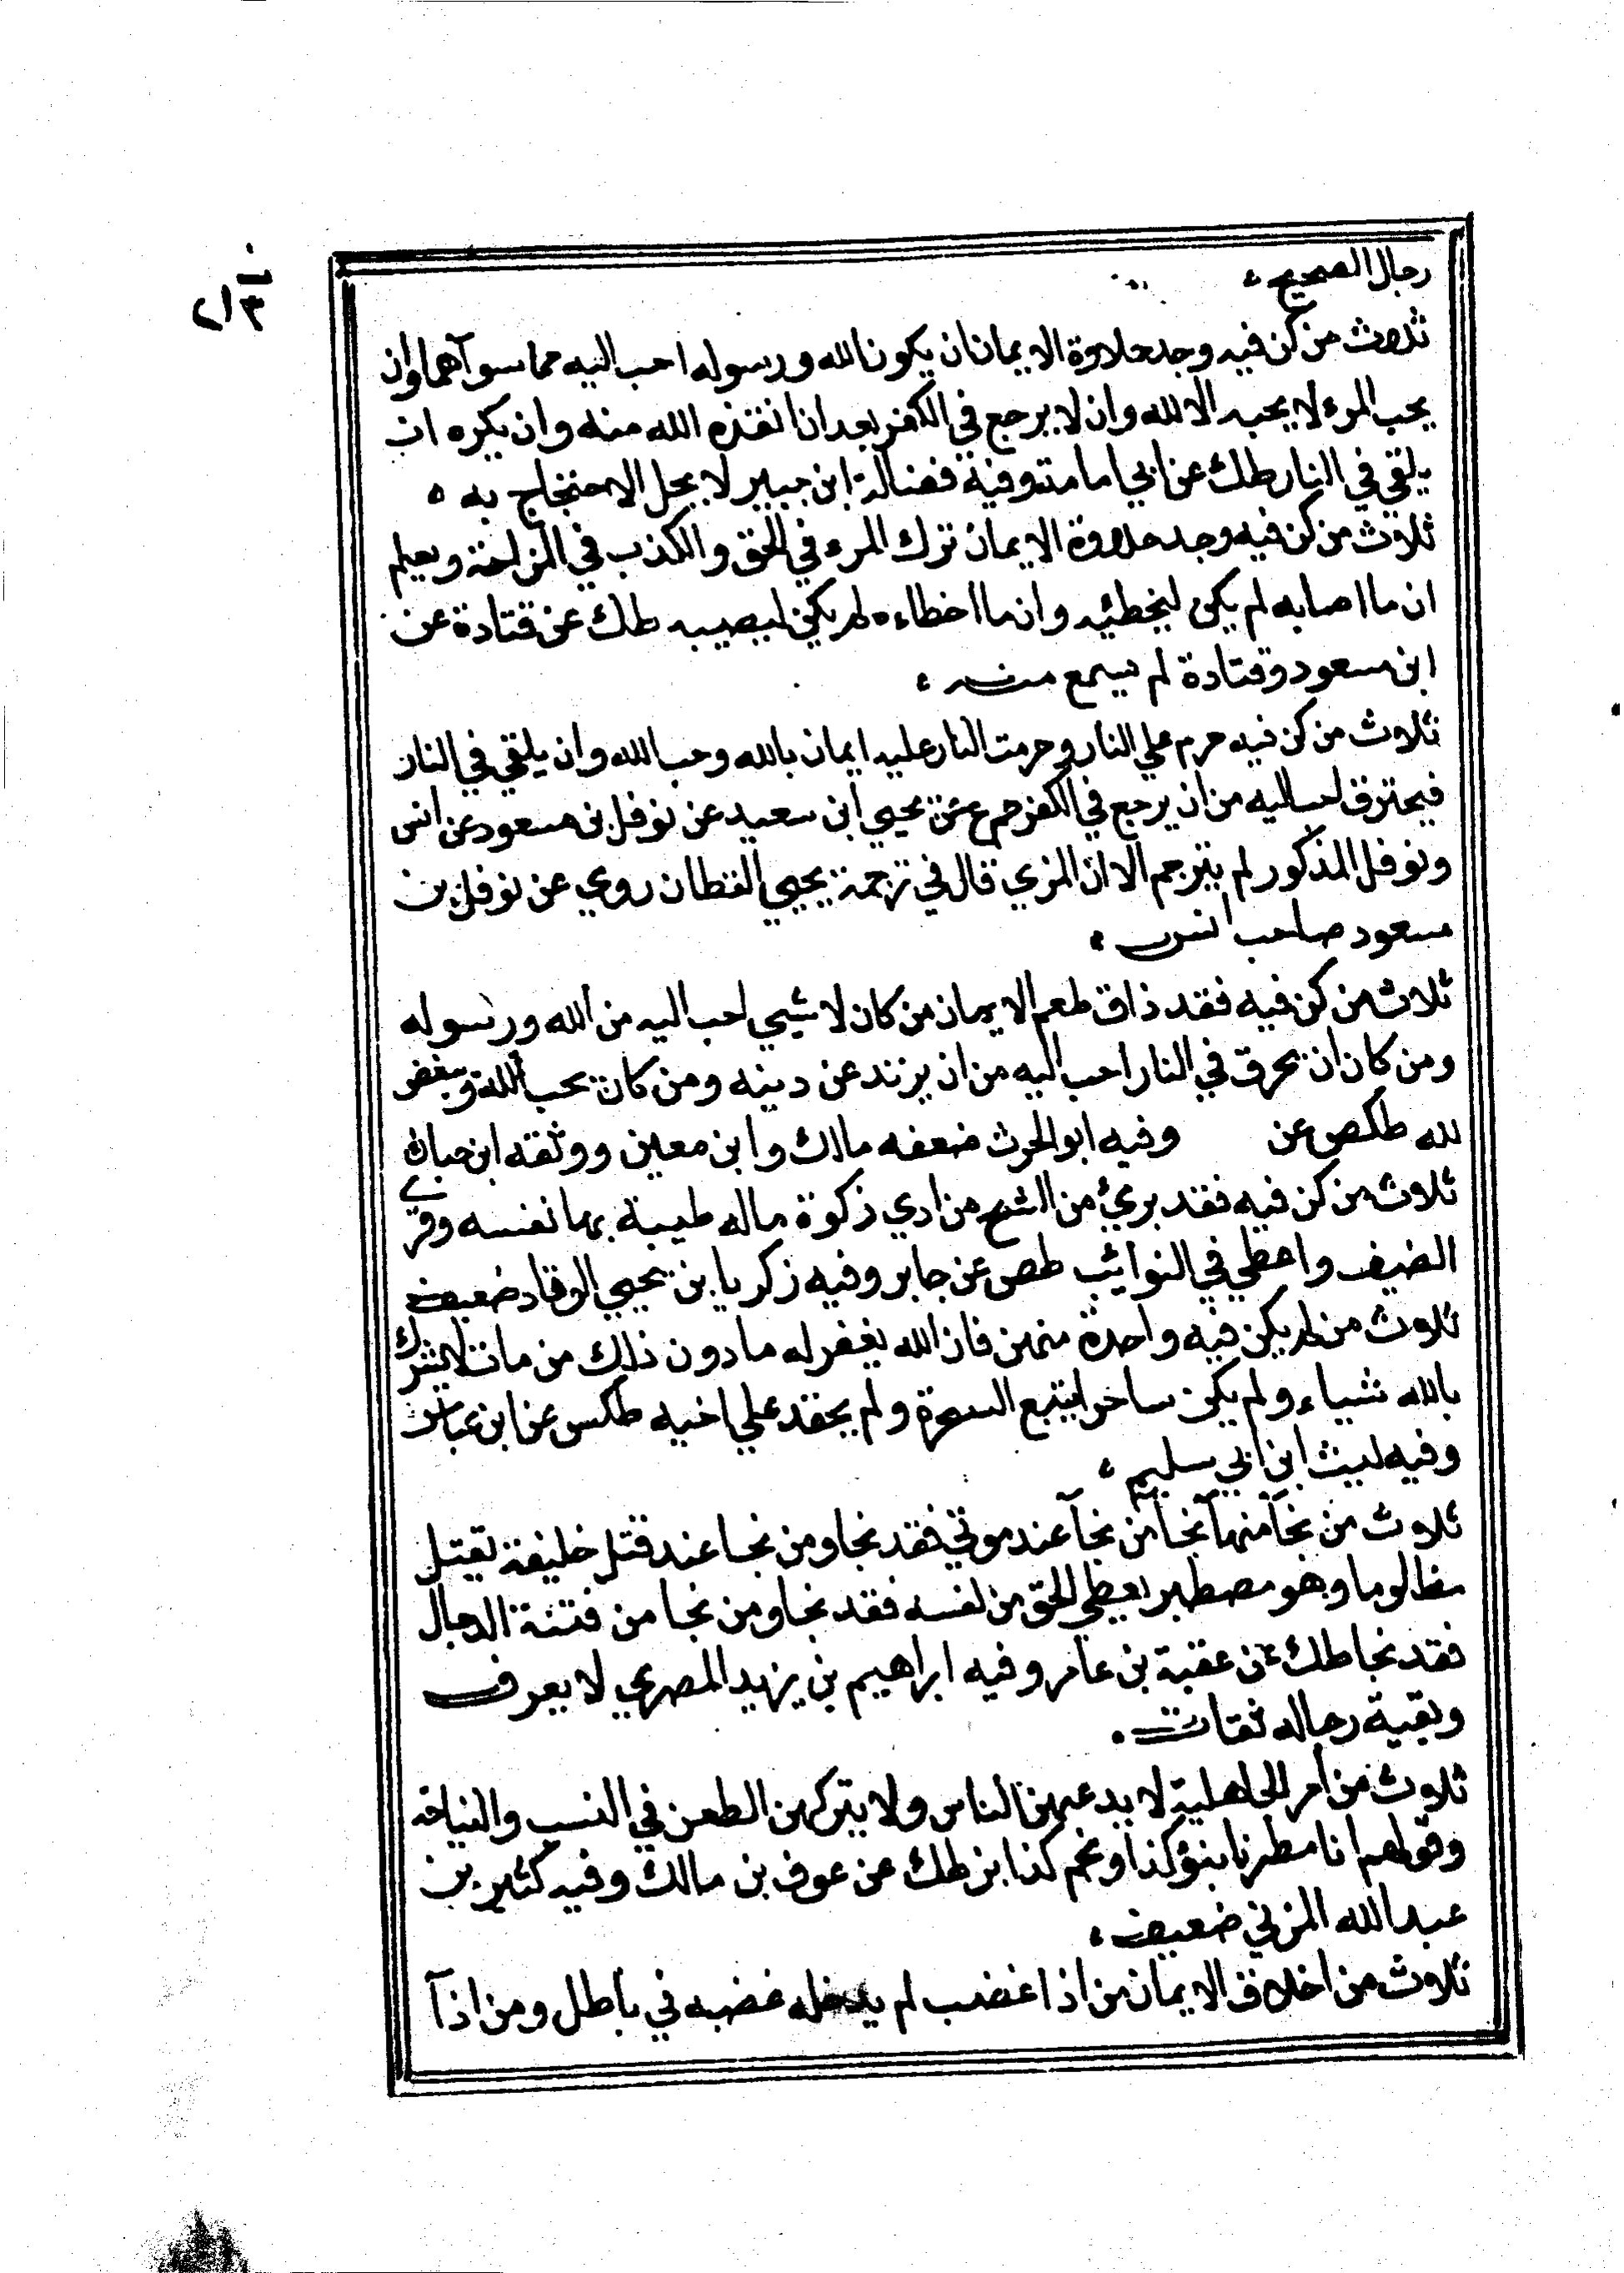 رجال الصحيح
ثلاث من كن فيه وجد حلاوة الايمان ان يكون الله ورسوله احب اليه مما سوآهما وان
يحب المرء لا يحبه الا لله وان لا يرجع في الكفر بعد ان انقذه الله منه وان يكره ان
يلقي في النار طك عن ابي امامة وفيه فضالة ابن جبير لا يحل الاحتجاج به
ثلاث من كن فيه وجد حلاوة الايمان ترك المرء في الحق والكذب في المزاحة ويعلم
ان ما اصابه لم يكن ليخطئه وان ما اخطاءه لم يكن ليصيبه طك عن قتادة عن
ابن مسعود وقتادة لم يسمع منه
ثلاث من كن فيه حرم علي النار وحرمت النار عليه ايمان بالله وحب الله وان يلقي في النار
فيحترق احب اليه من ان يرجع في الكفر حم ع عن يحيي ابن سعيد عن نوفل بن مسعود عن انس
ونوفل المذكور لم يترجم الا ان المزي قال في ترجمة يحيي القطان روي عن نوفل بن
مسعود صاحب انس
ثلاث من كن فيه فقد ذاق طعم الايمان من كان لا شيي احب اليه من الله ورسوله
ومن كان ان يحرق في النار احب اليه من ان يرتد عن دينه ومن كان يحب لله ويبغض
لله طكص عن وفيه ابو الحرث ضعفه مالك وابن معين ووثقه ابن حبان
ثلاث من كن فيه فقد بريء من الشح من ادي زكوة ماله طيبة بها نفسه وقري
الضيف واعطي في النوايب طص عن جابر وفيه زكريا بن يحيي الوقاد ضعيف
ثلاث من لم يكن فيه واحدة منهن فان الله يغفر له ما دون ذلك من مات لا يشرك
بالله شياء ولم يكن ساحرا يتبع السحرة ولم يحقد علي اخيه طكس عن ابن عباس
وفيه ليث ابن ابي سليم
ثلاث من نجآ منها نجآ من نجآ عند موتي فقد نجا ومن نجا عند قتل خليفة يقتل
مظالوما وهو مصطبر يعطي الحق من نفسه فقد نجا ومن نجا من فتنة الدجال
فقد نجا طك عن عقبة بن عامر وفيه ابراهيم بن يزيد المصري لا يعرف
وبقية رجاله ثقات
ثلاث من امر الجاهلية لا يدعهن الناس ولا يتركهن الطعن في النسب والنياحة
وقولهم انا مطرنا بنؤ كذا ونجم كذا بز طك عن عوف بن مالك وفيه كثير بن
عبد الله المزني ضعيف
ثلاث من اخلاق الايمان من اذا غضب لم يدخله غضبه في باطل ومن اذآ